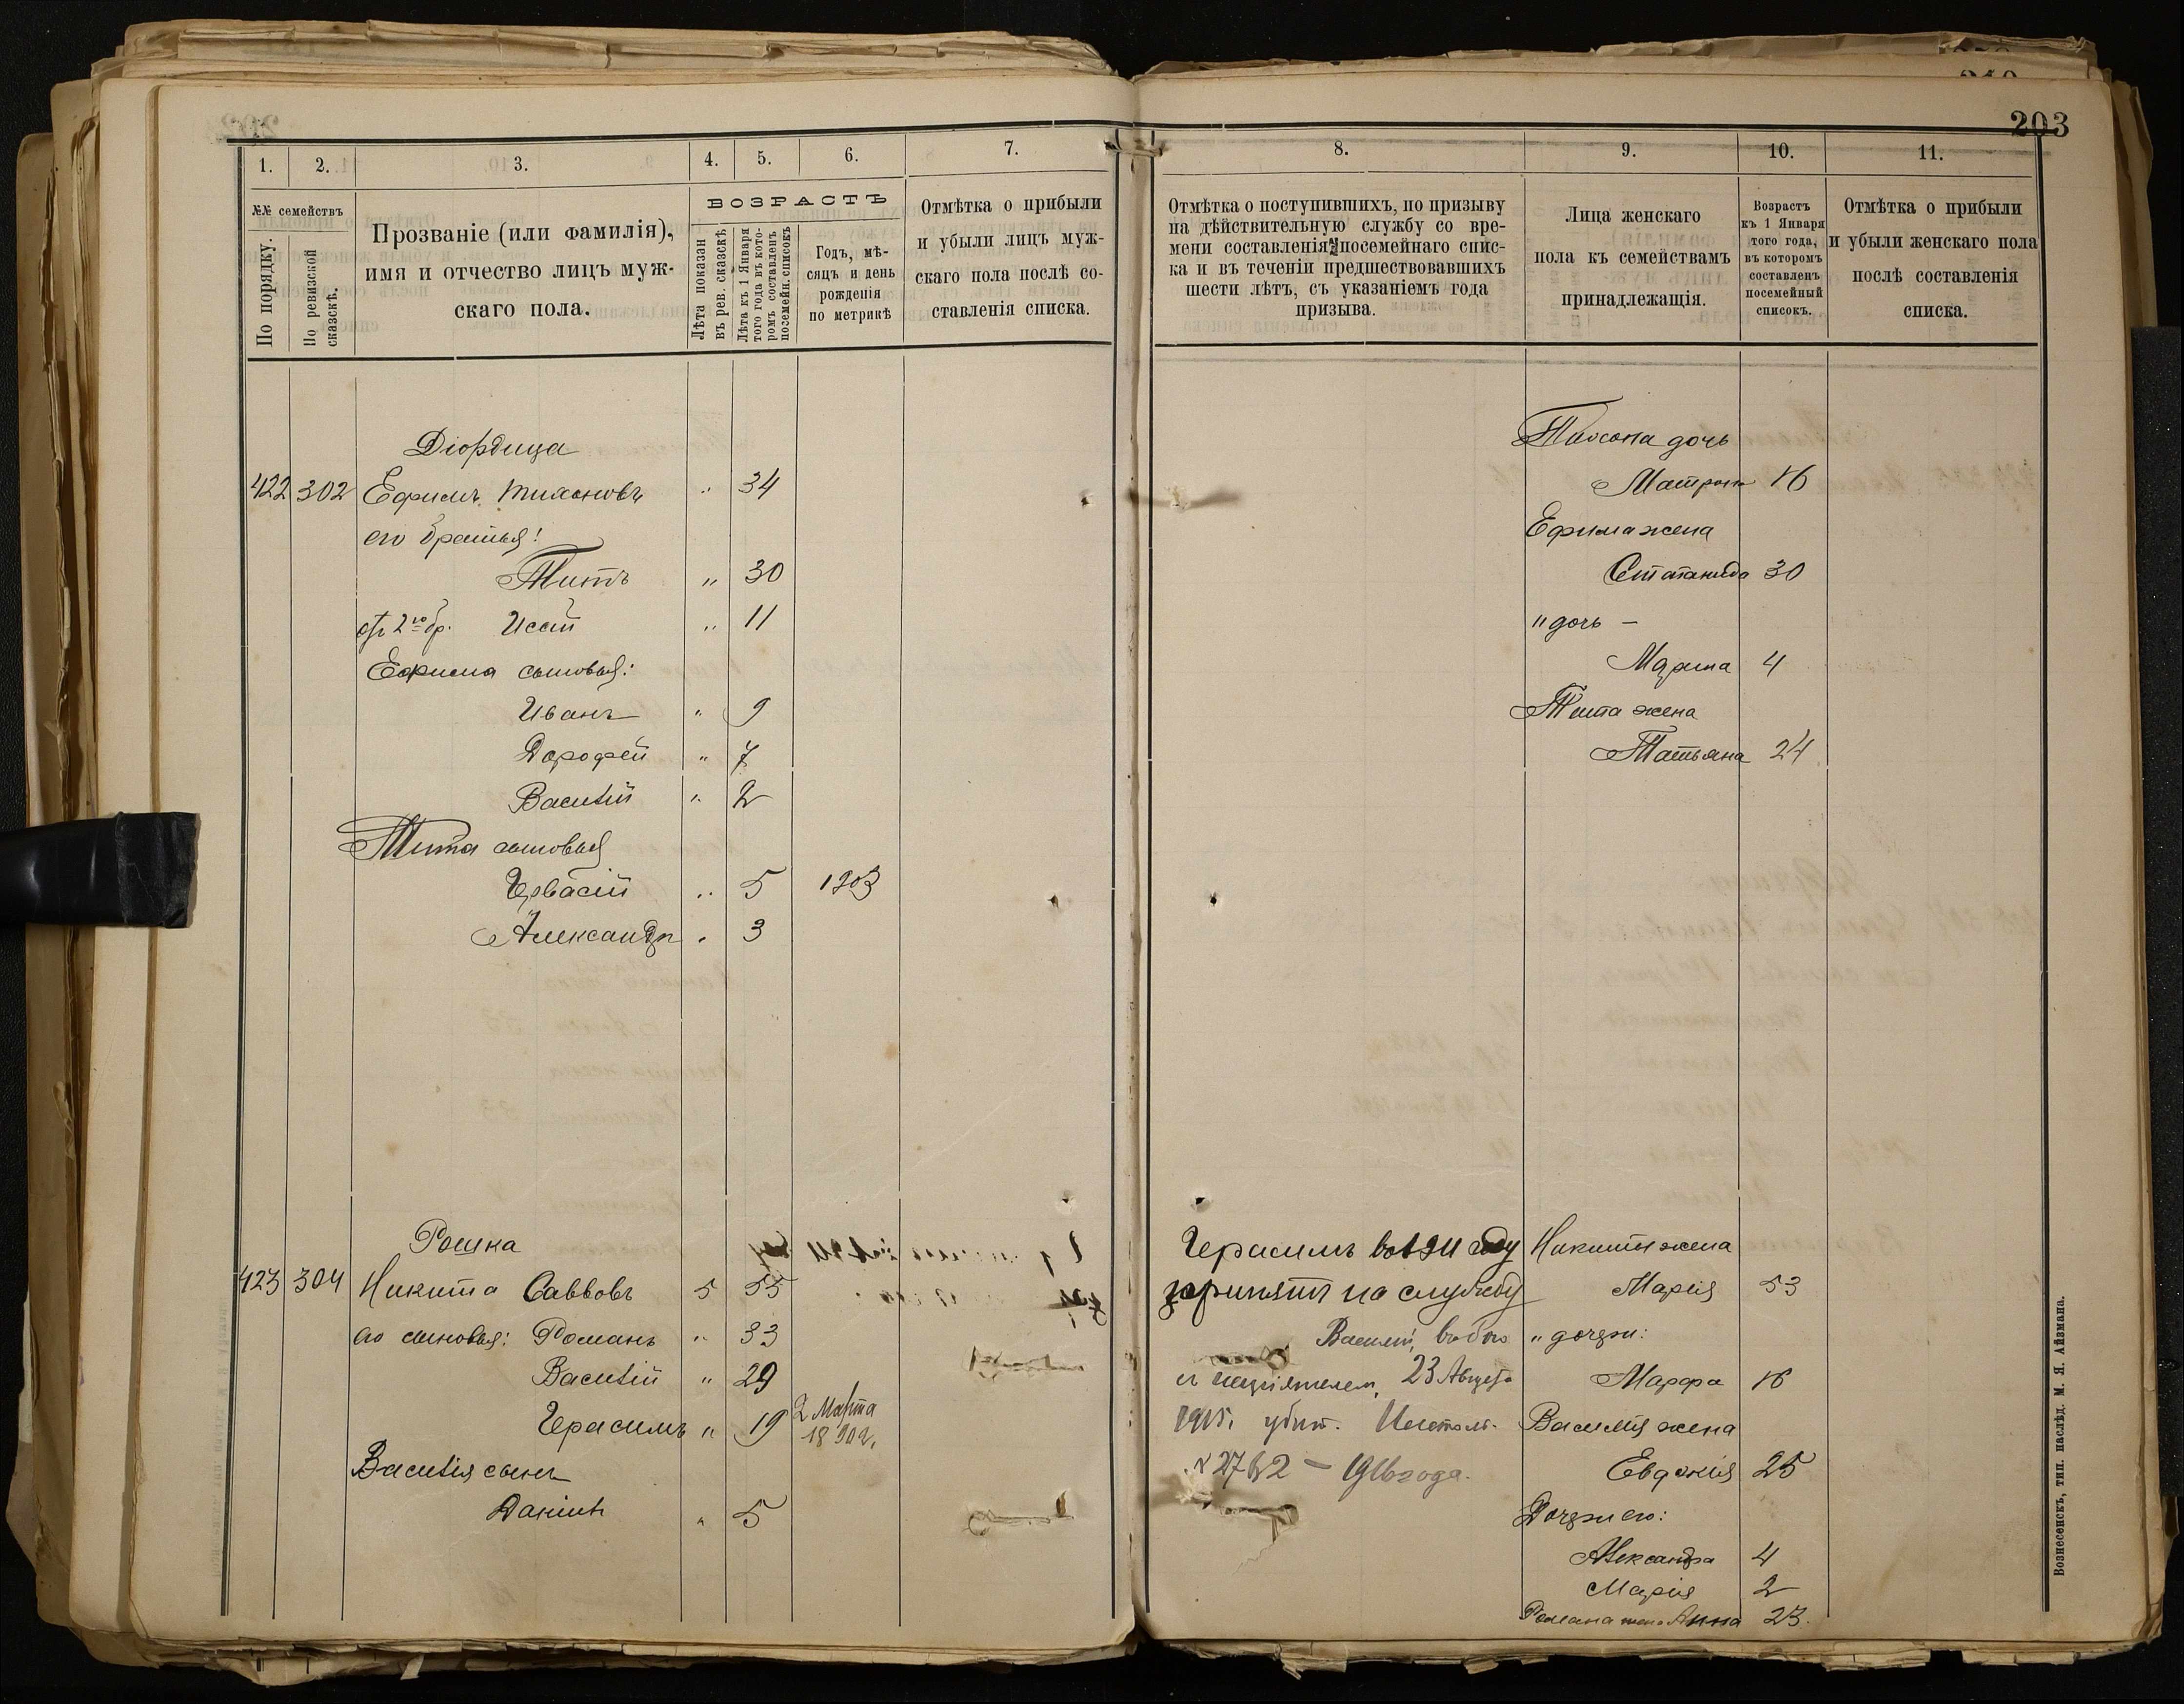 203
1. 2. 3. 4. 5. 6. 7.
№№ семействъ
По порядку.
По ревизской сказскѣ.
Прозваніе (или фамилія),
имя и отчество лицъ муж-
скаго пола.
ВОЗРАСТЪ
Лѣта показан
въ рев. сказскѣ
Лѣта къ 1 Января
того года въ кото-
ромъ составленъ
посемейн. списокъ
Годъ, мѣ-
сяцъ и день
рожденія
по метрикѣ
Отмѣтка о прибыли
и убыли лицъ муж-
скаго пола послѣ со-
ставленія списка.
Діордица
422 302 Ефимъ Тихоновъ " 34
его братья:
Титъ " 30
отъ 2го бр. Исай " 11
Ефима сыновья:
Иванъ " 9
Дорофей " 7
Василій " 2
Тита сыновья
Герваcій " 5 1903
Александръ " 3
Рошка
423 304 Никита Саввовъ 5 55
его сыновья: Романъ " 33
Василій " 29
Герасимъ " 19 2 Марта
Василія сынъ
Даніилъ " 5
8. 9. 10. 11.
Отмѣтка о поступившихъ, по призыву
на дѣйствительную службу со вре-
мени составленія посемейнаго спис-
ка и въ теченіи предшествовавшихъ
шести лѣтъ, съ указаніемъ года
призыва.
Лица женскаго
пола къ семействамъ
принадлежащія.
Возрастъ
къ 1 Января
того года,
въ которомъ
составленъ
посемейный
списокъ.
Отмѣтка о прибыли
и убыли женскаго пола
послѣ составленія
списка.
Тихона дочь
Матрона 16
Ефима жена
Степанида 30
" дочь –
Марина 4
Тита жена
Татьяна 24
Герасимъ въ 1911 году Никиты жена
принятъ на службу Марія 53
Василій, въ бою " дочери:
съ непріятелем, 23 Августа Марфа 16
1915г. убит. Василія жена
– 1916 года. Евдокія 25
Дочери его:
Александра 4
Марія 2
Романа жена Анна 23.
Вознесенскъ, тип. наслѣд. М. Я. Айзмана.